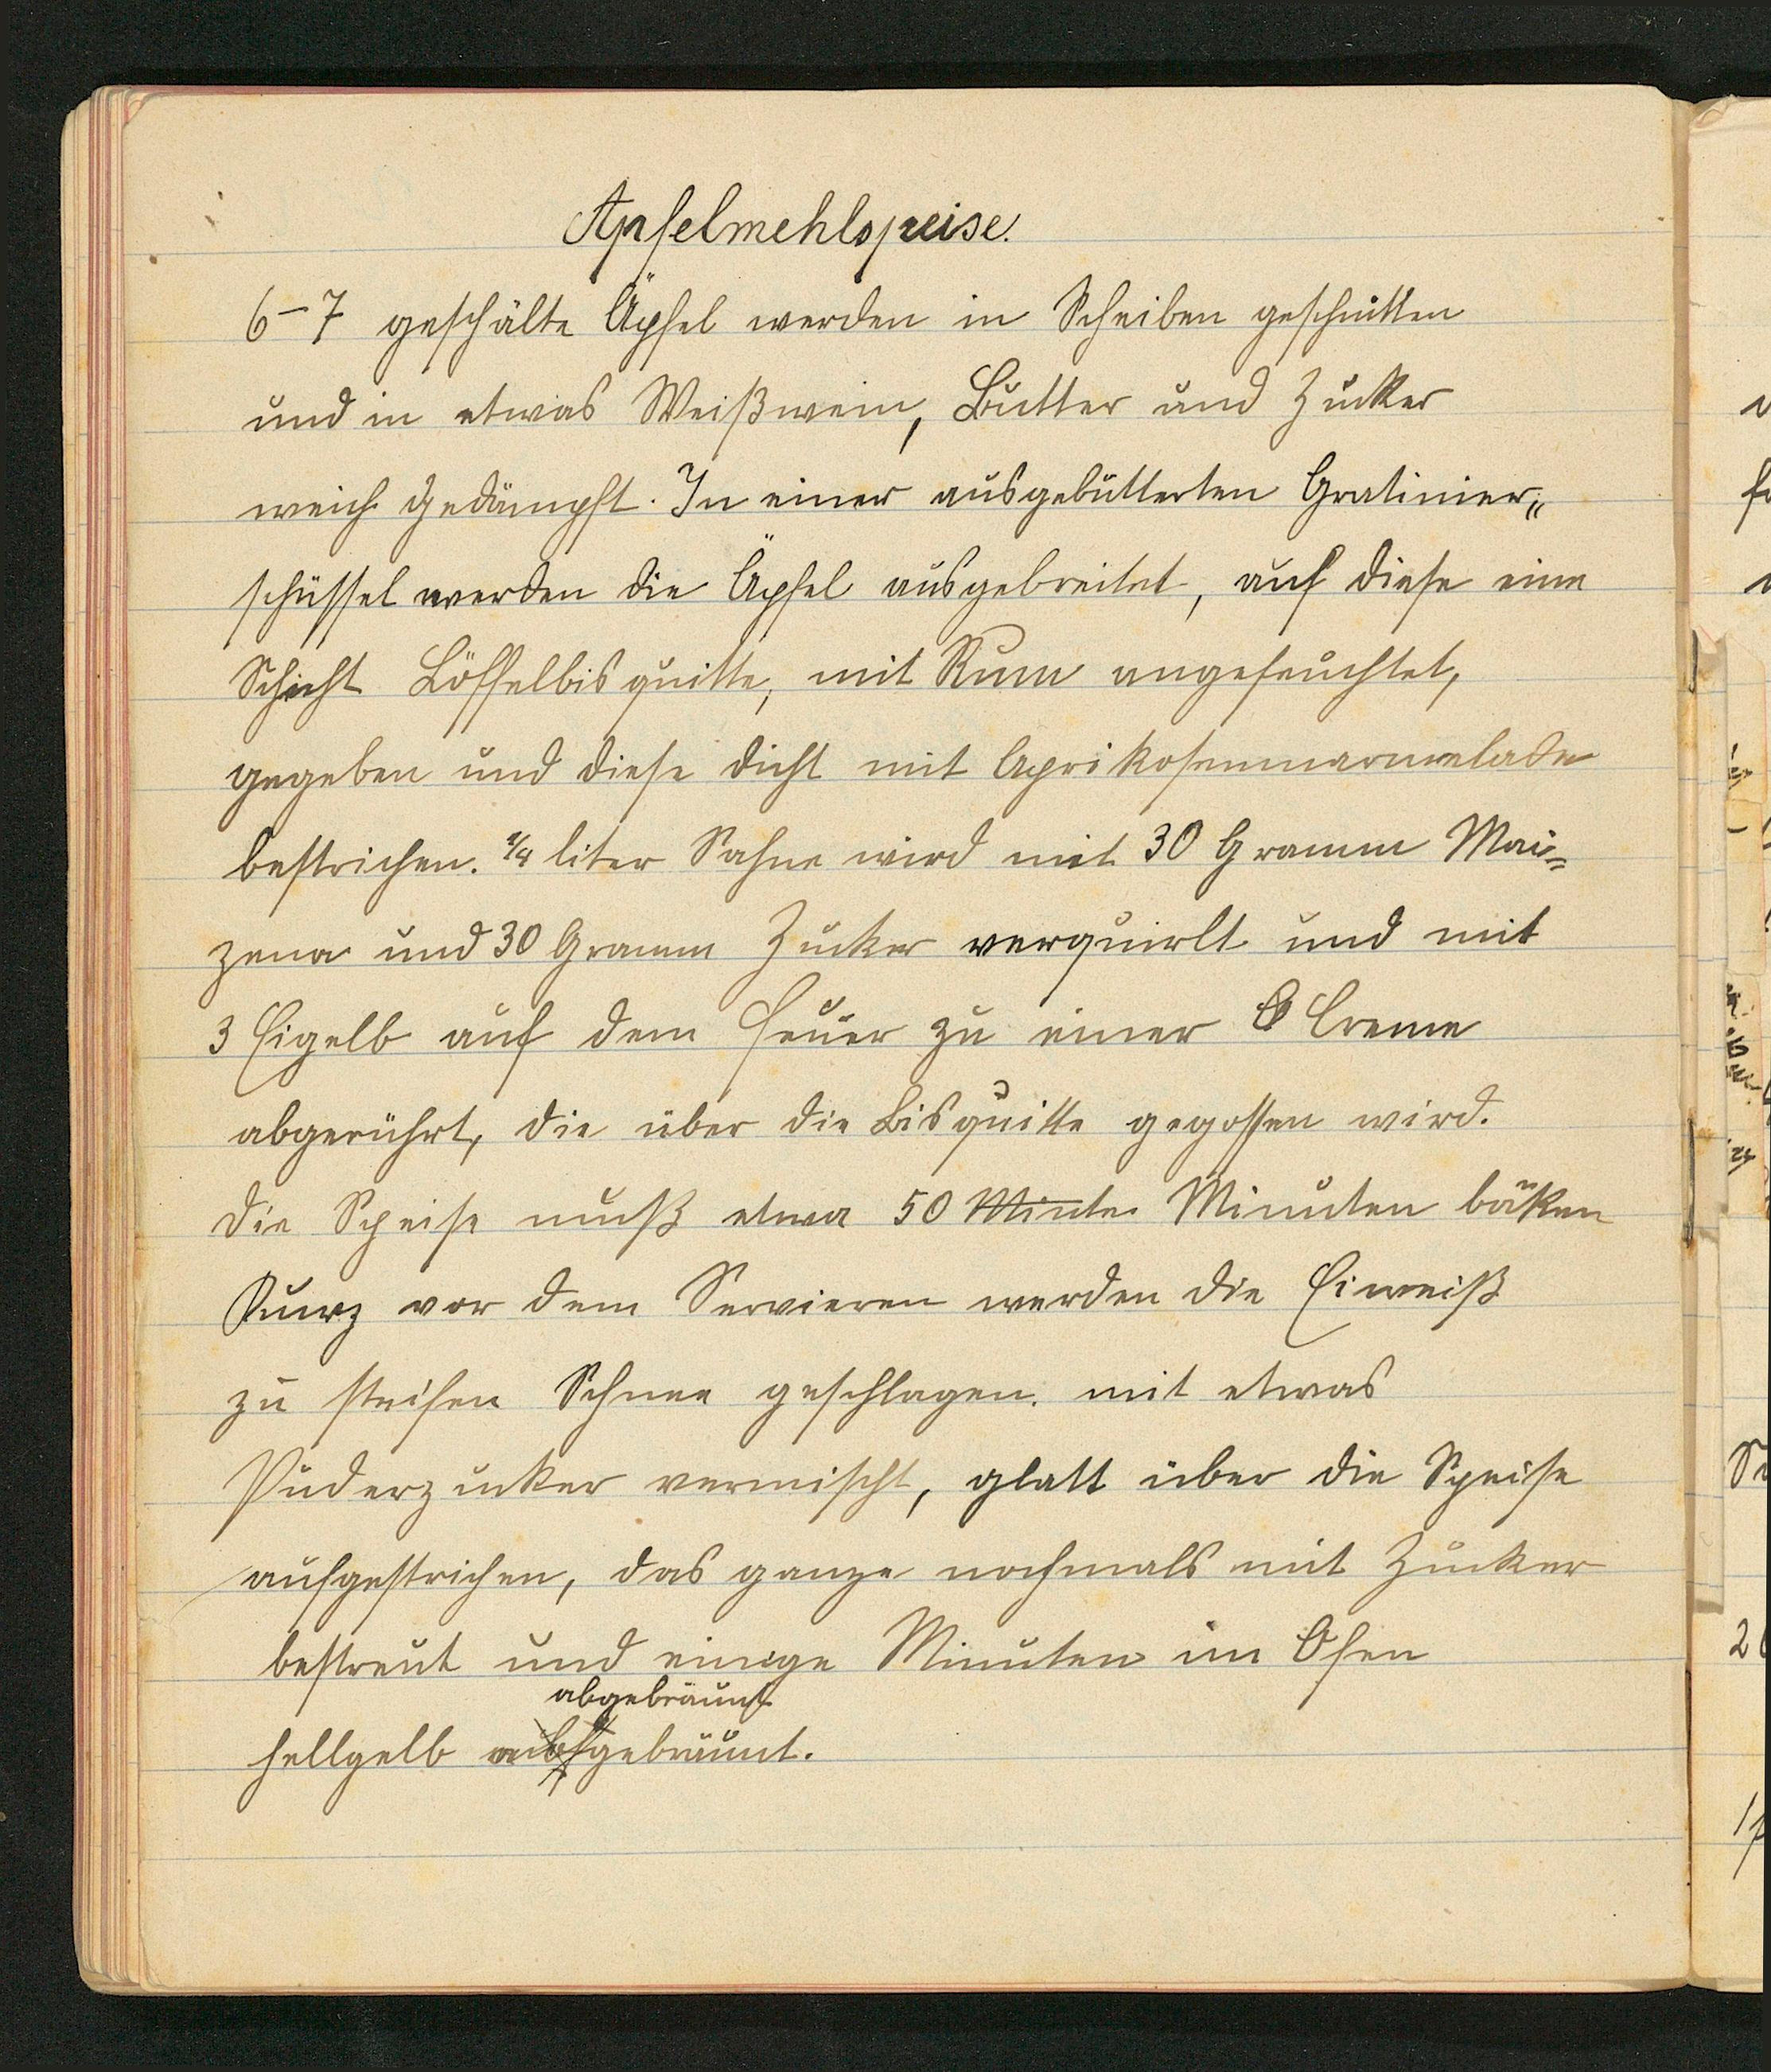 Apfelmehlspeise.
6-7 geschälte Äpfel werden in Scheiben geschnitten
und in etwas Weißwein, Butter und Zucker
weich gedämpft. In einer ausgebutterten Gratinier„
schüssel werden die Äpfel ausgebreitet, auf diese eine
Schicht Löffelbisquitte, mit Rum angefeuchtet,
gegeben und diese dicht mit Aprikosenmarmelade
bestrichen. 1/4 liter Sahne wird mit 30 Gramm Mai=
zena und 30 Gramm Zucker verquirlt und mit
3 Eigelb auf dem Feuer zu einer Creme
abgerührt, die über die Bisquitte gegossen wird.
Die Speise muß etwa 50 Minute Minuten bäken
Kurz vor dem Servieren werden die Eiweiß
zu steifen Schnee geschlagen. mit etwas
Puderzucker vermischt, glatt über die Speise
aufgestrichen, das ganze nochmals mit Zucker
bestreut und einige Minuten im Ofen
abgebräunt
hellgelb gebräunt.